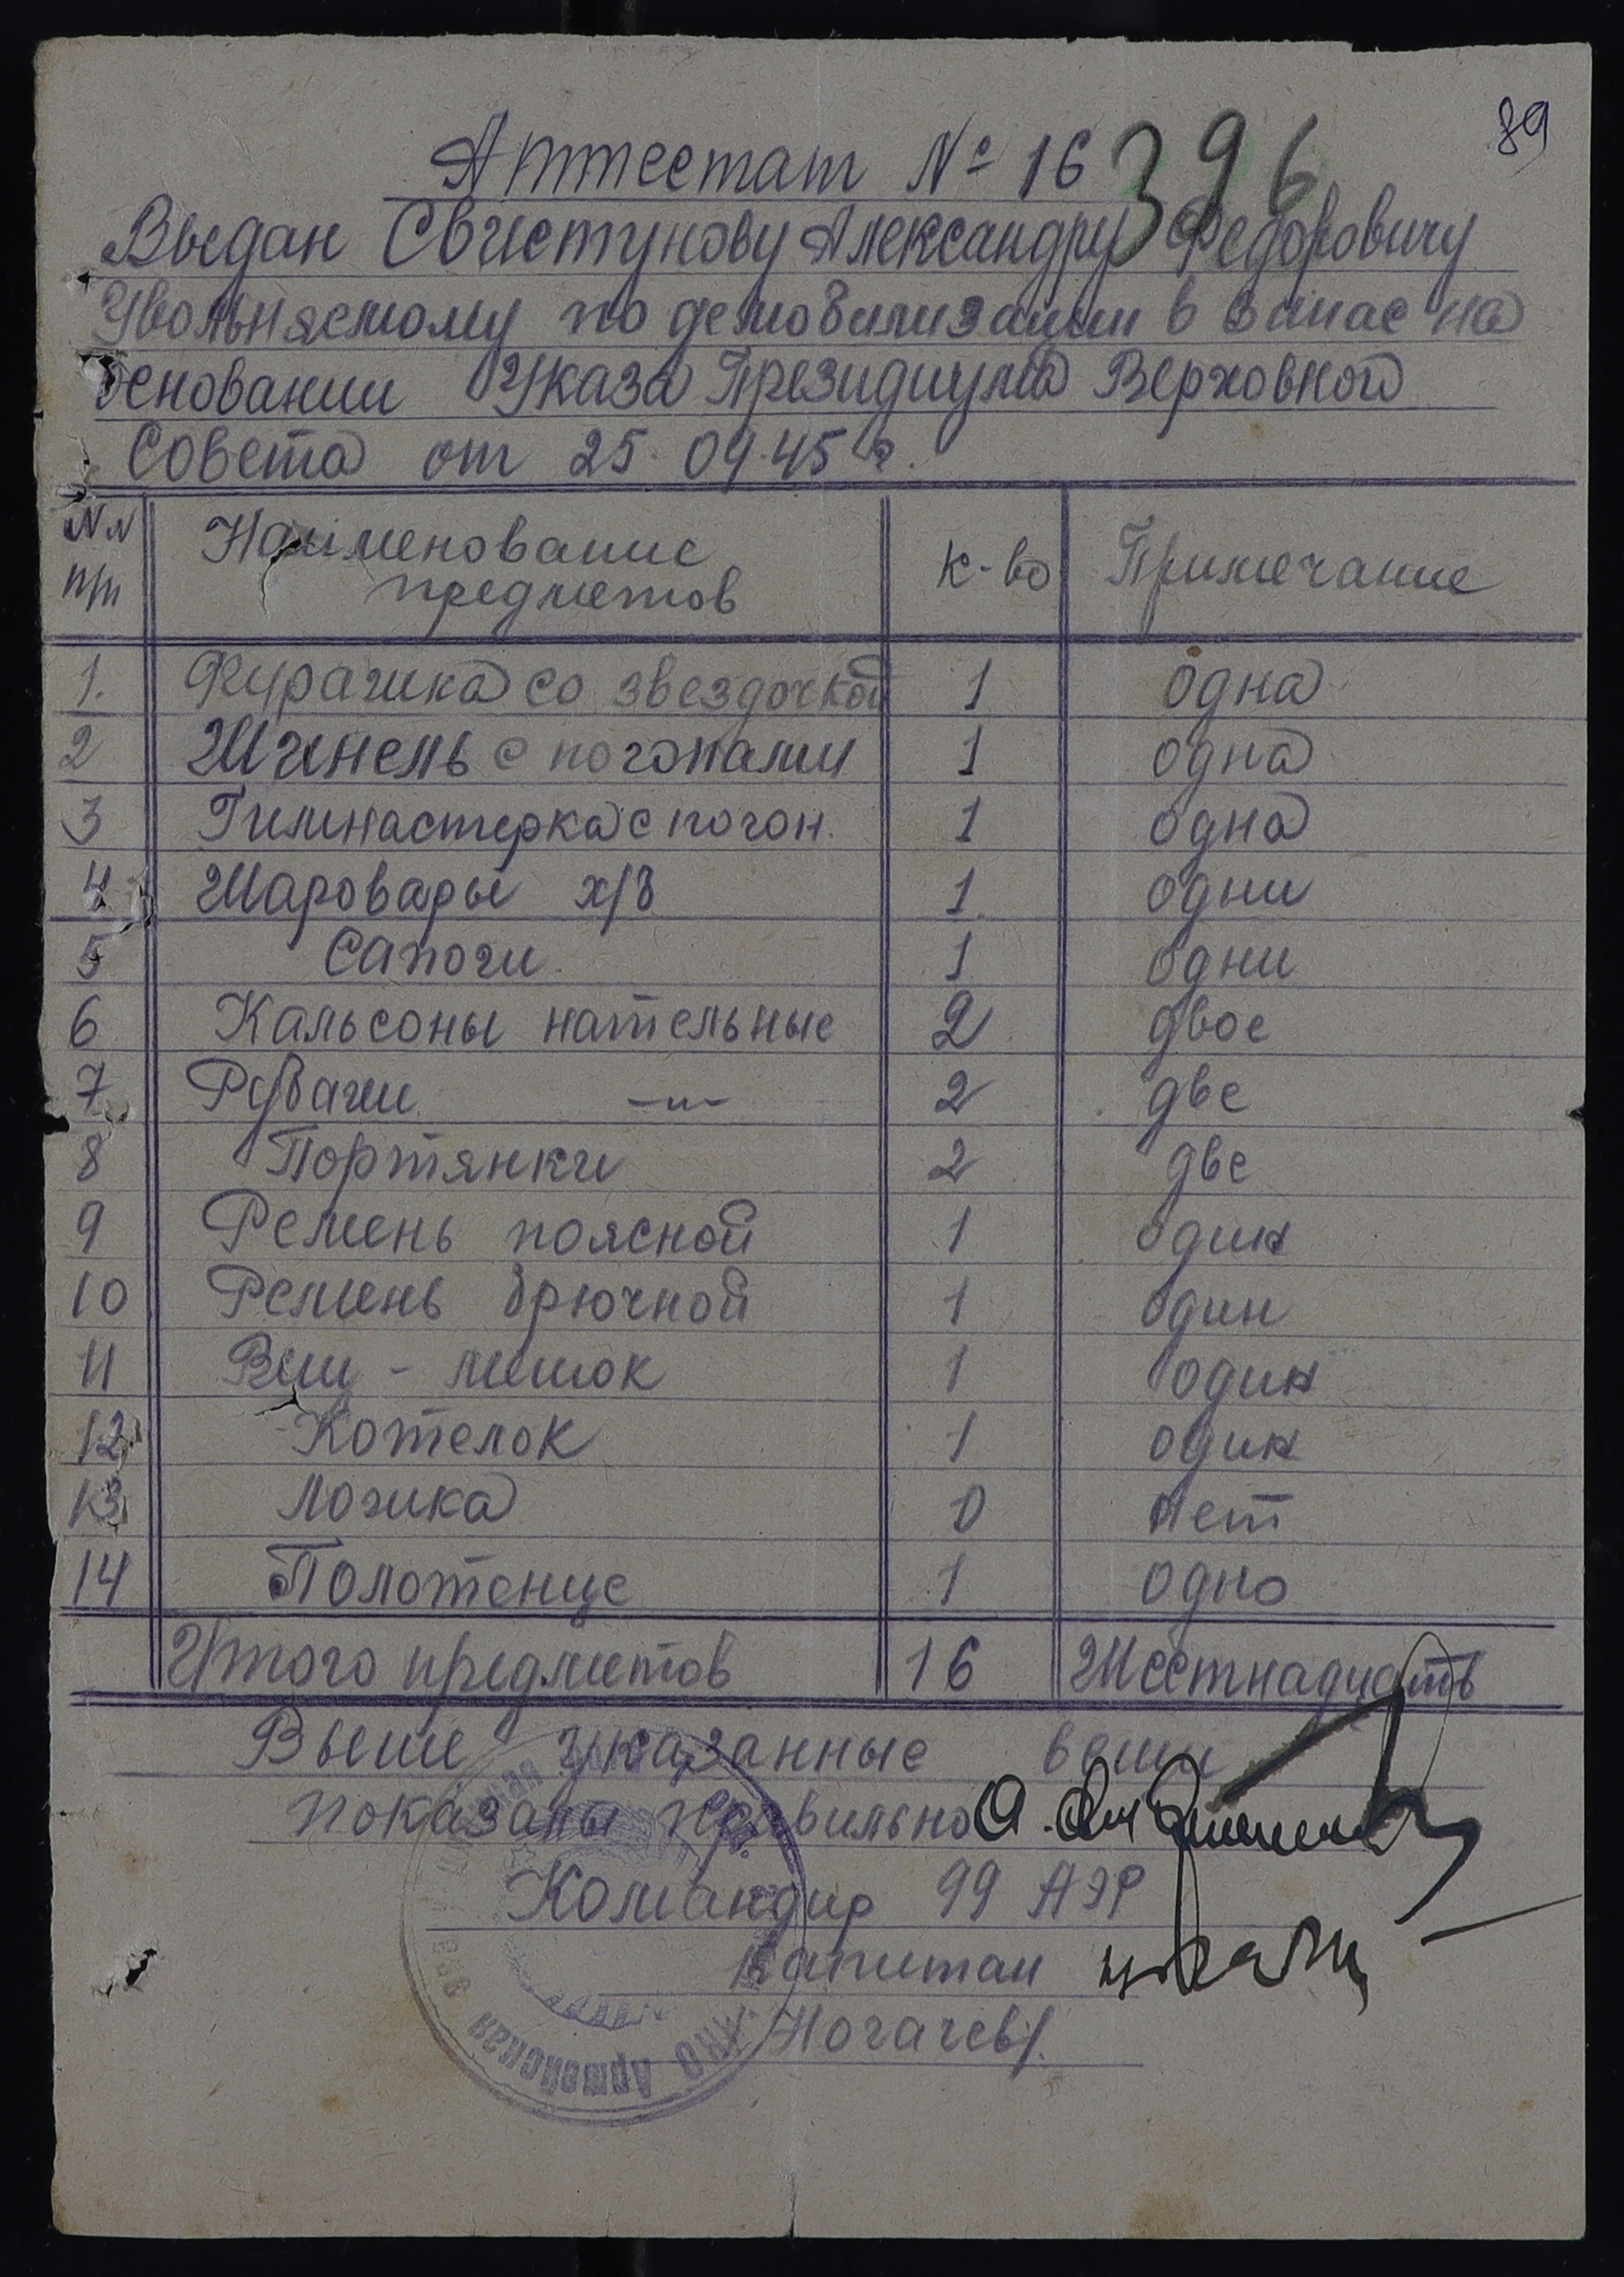 89
Аттестат № 16
396
Выдан Свистунову Александру Федоровичу
Увольняемому по демобилизации в запас на
основании Указа Президиума Верховного
Совета от 25.09.45 г.
NN п/п Наименование предметов к-во Примечание
1. Фуражка со звездочкой 1 одна
2 Шинель с погонами 1 одна
3 Гимнастерка с погон. 1 одна
4 Шаровары х/б 1 одни
5 Сапоги 1 одни
6 Кальсоны нательные 2 двое
7 Рубахи —"— 2 две
8 Портянки 2 две
9 Ремень поясной 1 один
10 Ремень брючной 1 один
11 Вещ - мешок 1 один
12 Котелок 1 один
13 Ложка 0 нет
14 Полотенце 1 одно
Итого предметов 16 Шестнадцать
Выше указанные вещи
показаны правильно
Командир 99 АЭР
капитан
/Ногачев/.
НКО Армейская